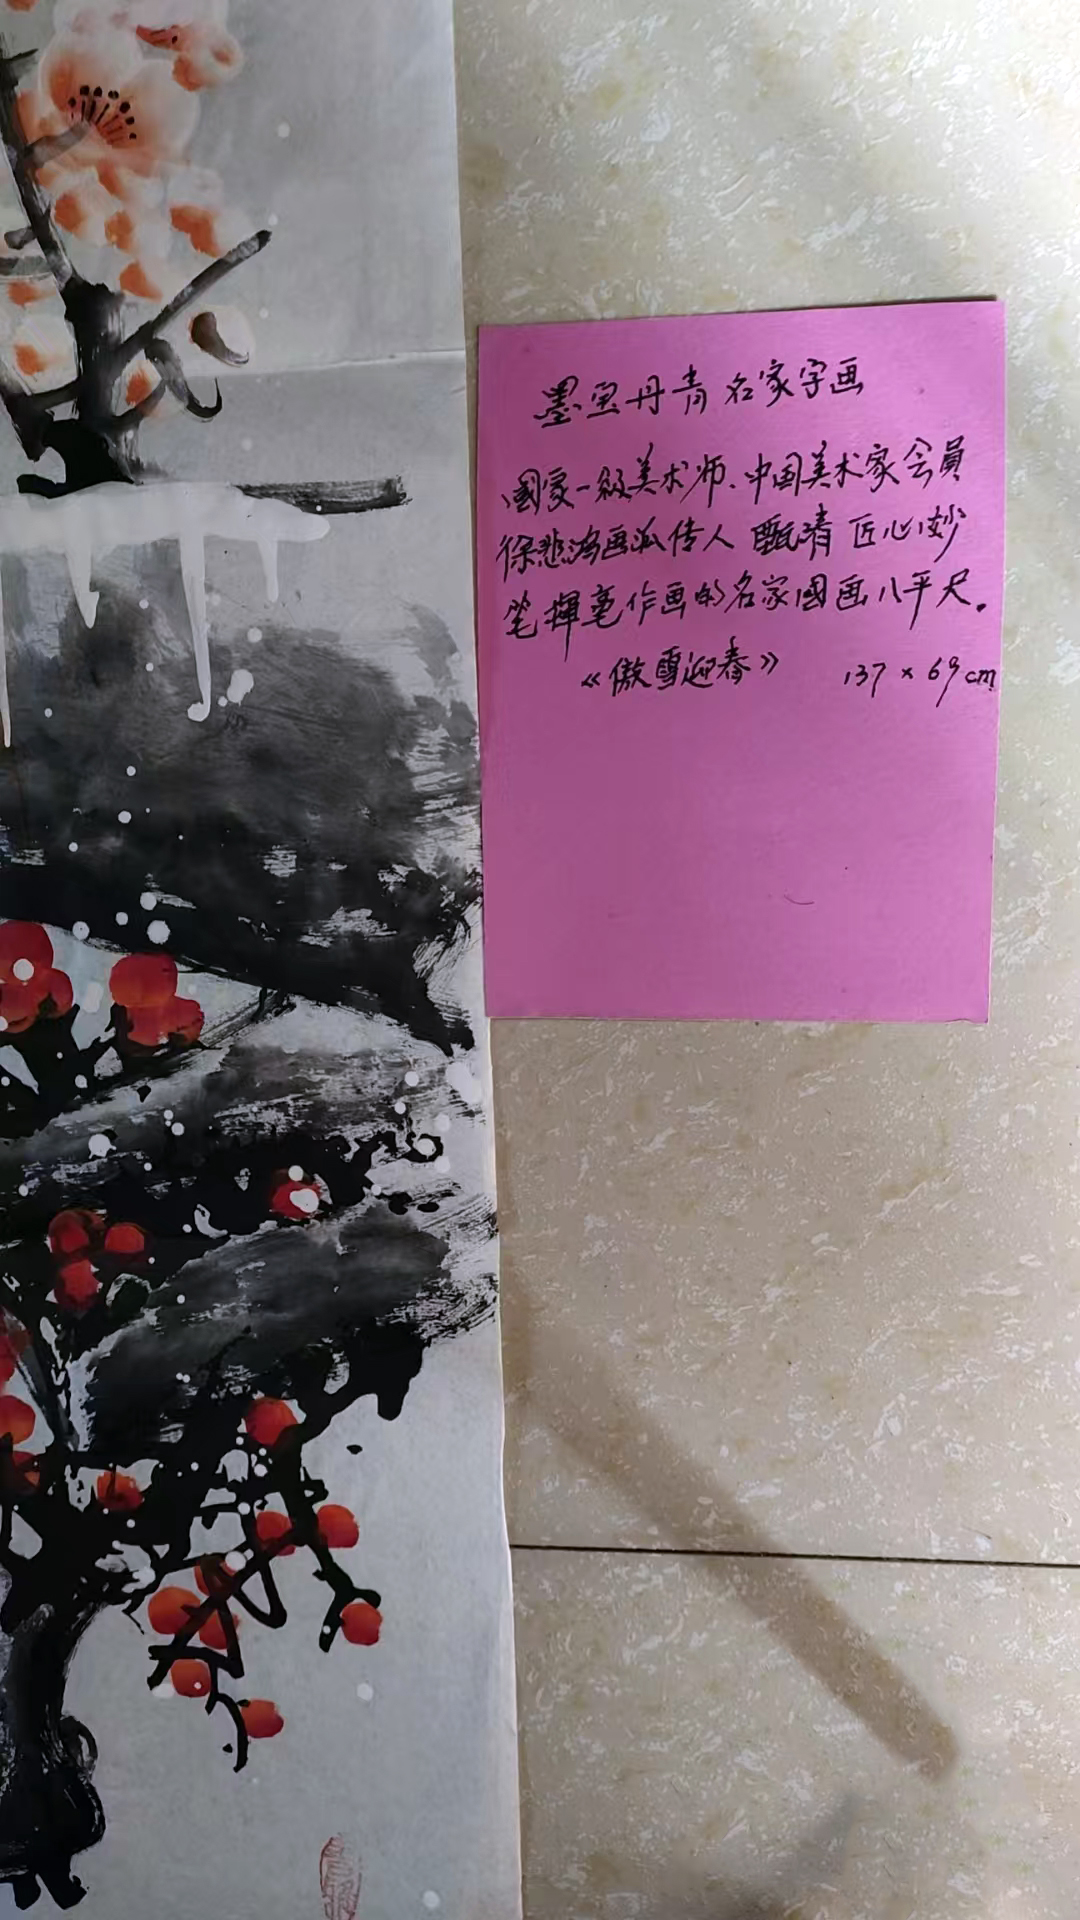 墨宝丹青 名家字画
國家一级美术师、中国美术家会員
徐悲鸿画派传人 甄清 匠心妙
笔揮毫作画的名家國画八平尺。
《傲雪迎春》 137×69cm